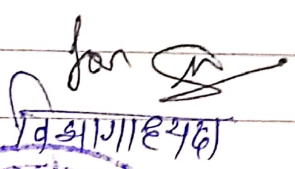 for
विभागाध्यक्ष